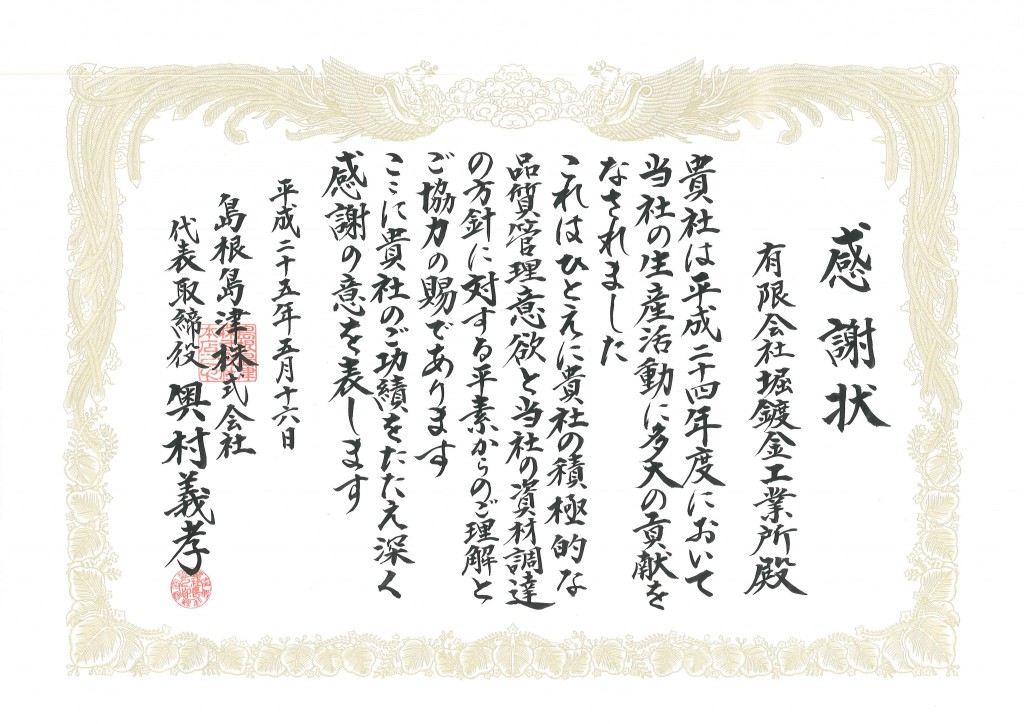 感謝状
有限会社堀鍍金工業所殿
貴社は平成二十四年度において
当社の生産活動に多大の貢献を
なされました
これはひとえに貴社の積極的な
品質管理意欲と当社の資材調達
の方針に対する平素からのご理解と
ご協力の賜であります
ここに貴社のご功績をたたえ深く
感謝の意を表します
平成二十五年五月十六日
島根島津株式会社
代表取締役 奥村義孝